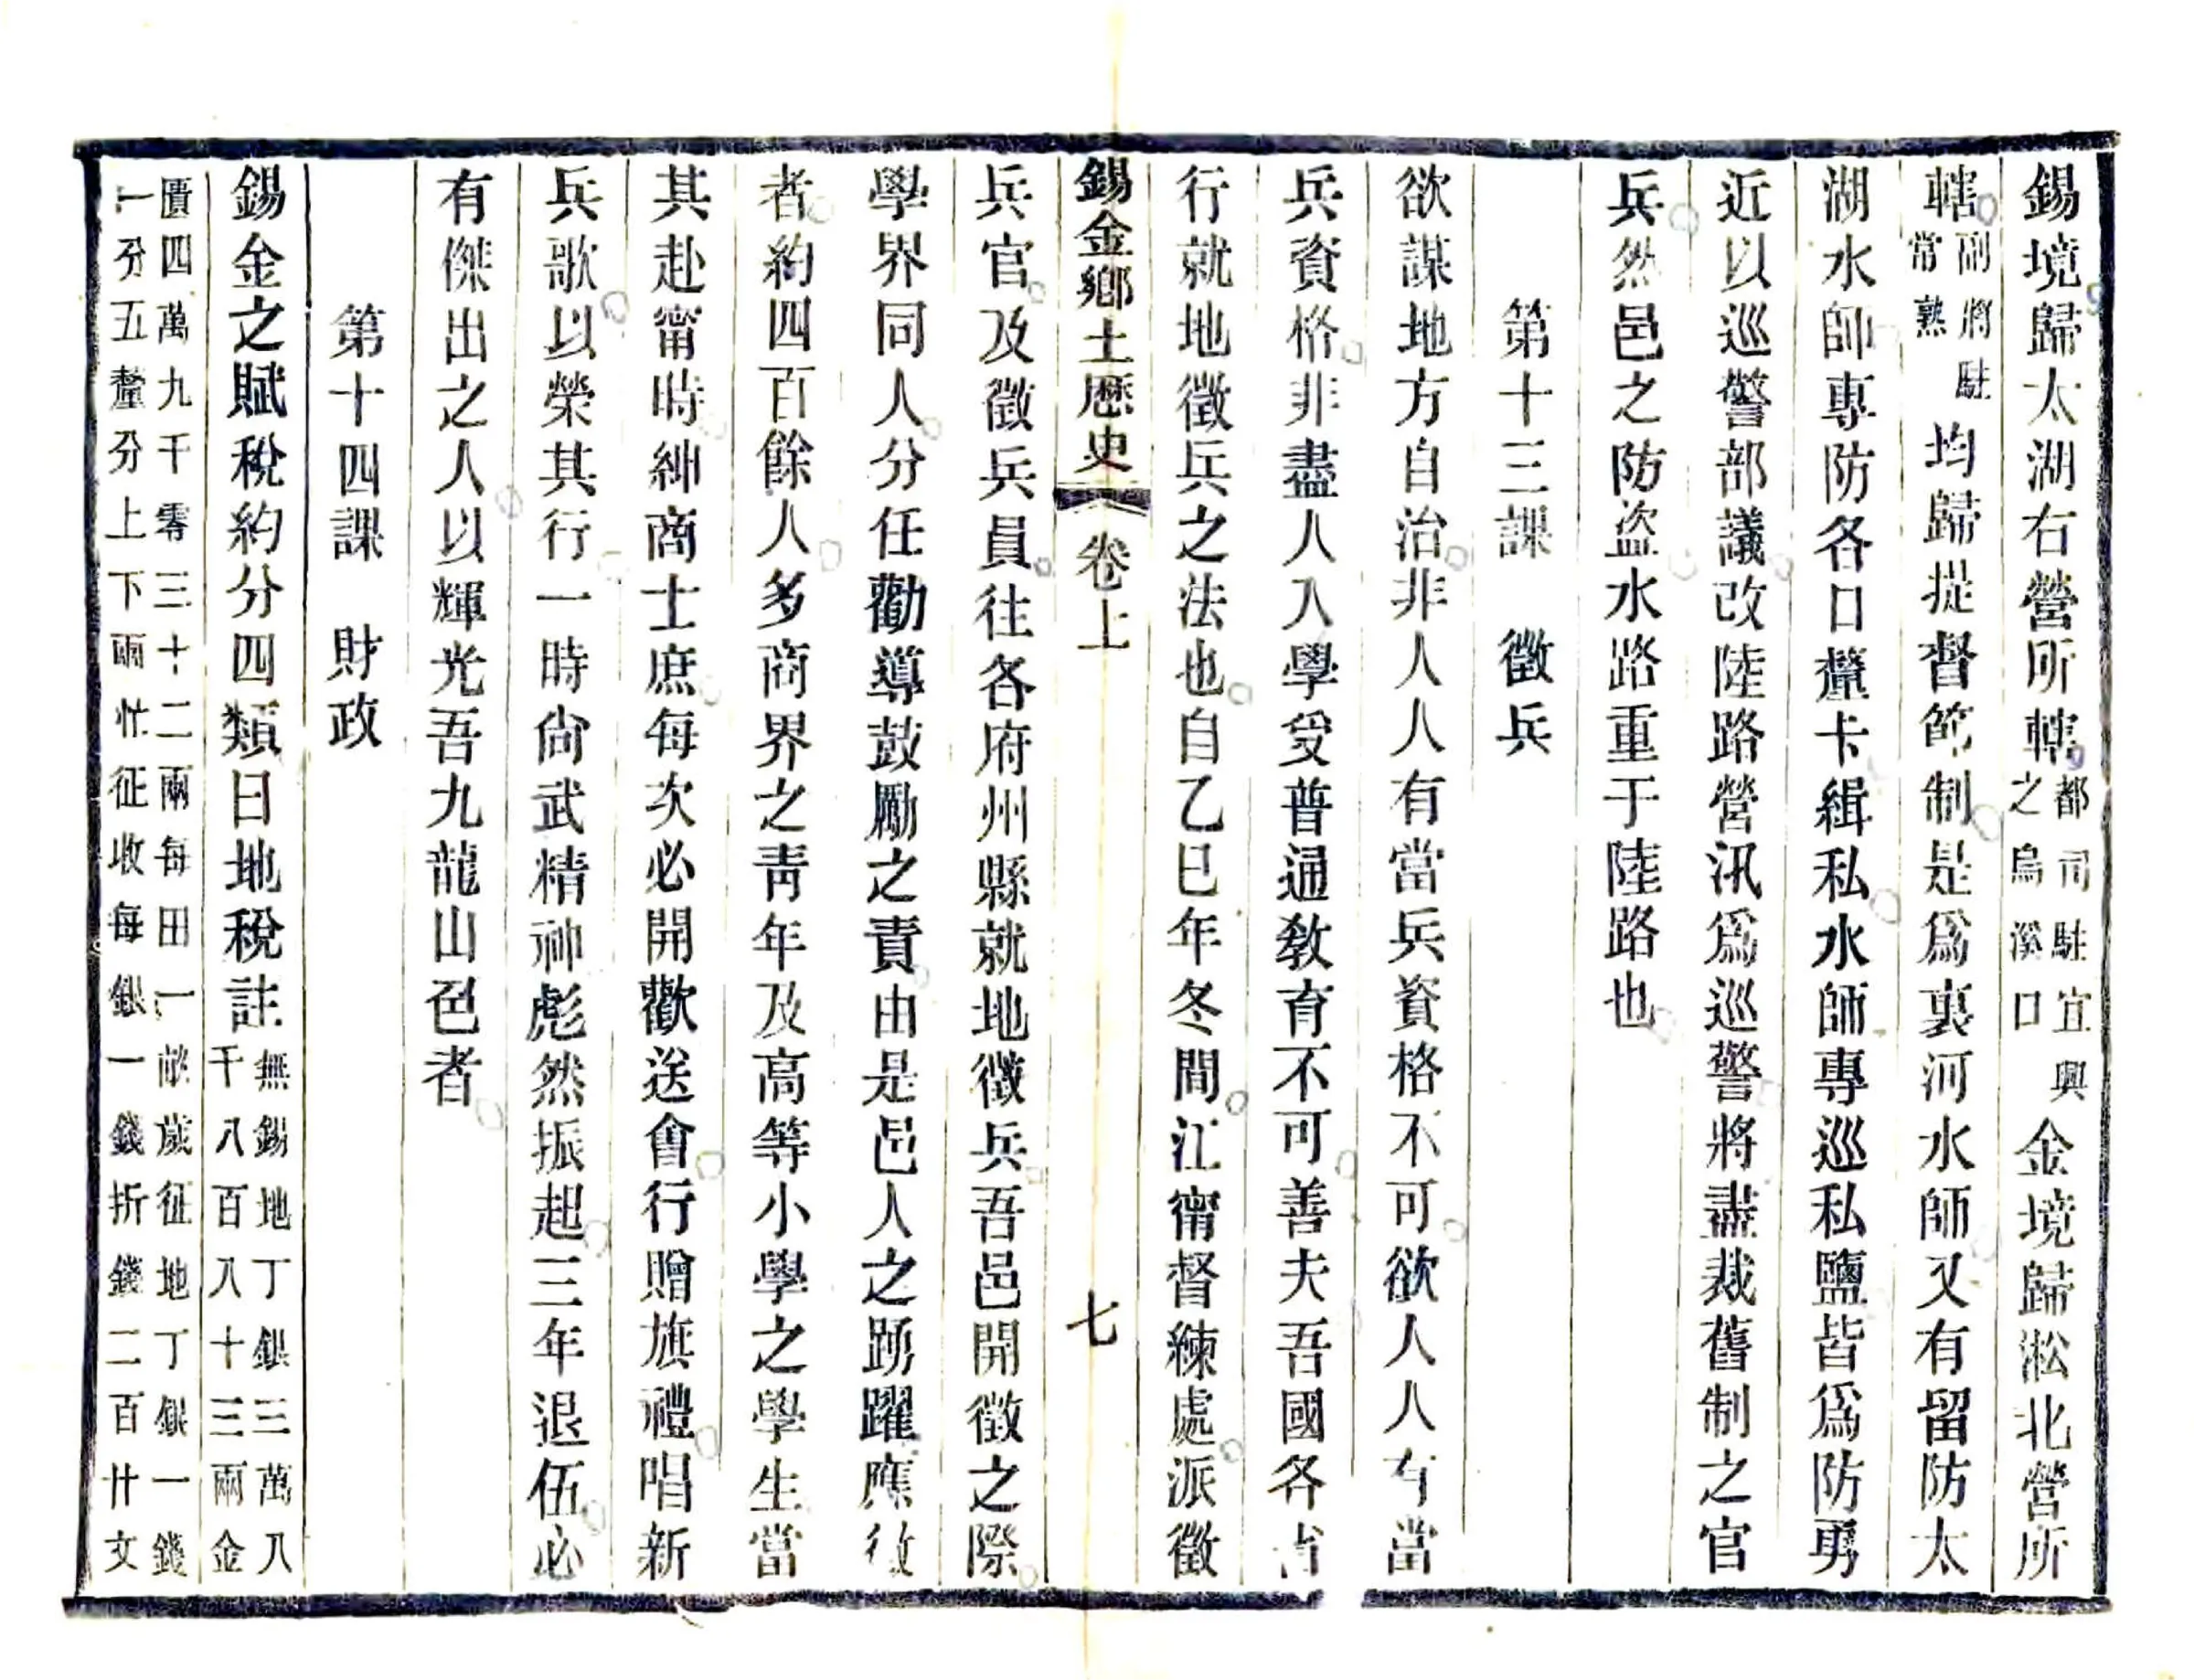 錫境歸太湖右營所轄都司駐宜興之烏溪口金境歸淞北營所
轄副將駐常熟均歸提督節制是爲裏河水師又有留防太
湖水師專防各口釐卡緝私水師專巡私鹽皆爲防勇
近以巡警部議改陸路營汛爲巡警將盡裁舊制之官
兵然邑之防盜水路重于陸路也
第十三課　徵兵
欲謀地方自治非人人有當兵資格不可欲人人有當
兵資格非盡人入學受普通教育不可善夫吾國各省
行就地徵兵之法也自乙巳年冬間江甯督練處派徵
錫金鄉土歷史　卷上　七
兵官及徵兵員往各府州縣就地徵兵吾邑開徵之際
學界同人分任勸導鼓勵之責由是邑人之踴躍應徵
者約四百餘人多商界之靑年及高等小學之學生當
其赴甯時紳商士庶每次必開歡送會行贈旗禮唱新
兵歌以榮其行一時尙武精神彪然振起三年退伍必
有傑出之人以輝光吾九龍山色者
第十四課　財政
錫金之賦稅約分四類曰地稅註無錫地丁銀三萬八千八百八十三兩金
匱四萬九千零三十二兩每田一畝歲征地丁銀一錢一分五釐分上下兩忙征收每銀一錢折錢二百廿文